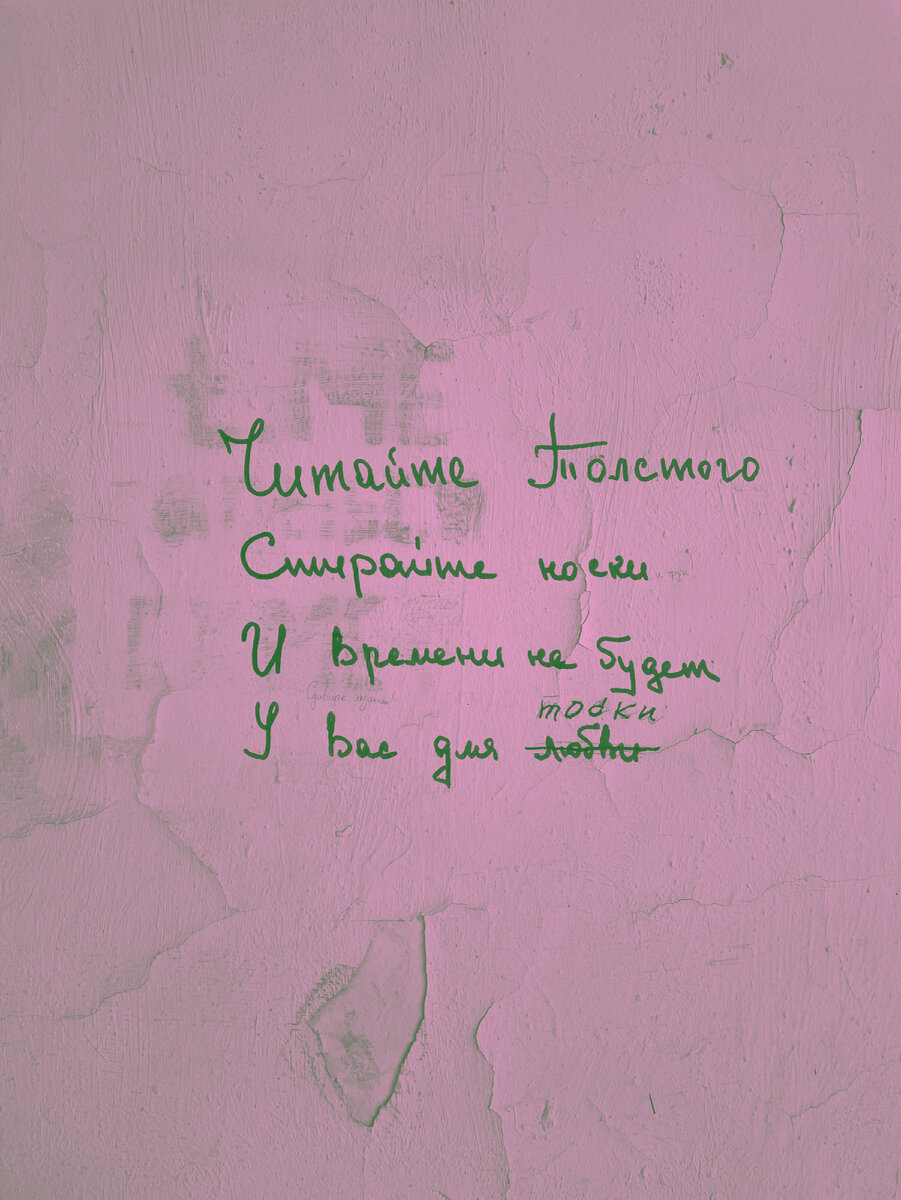 Читайте Толстого
Стирайте носки
И времени не будет
тоски
У вас для любви